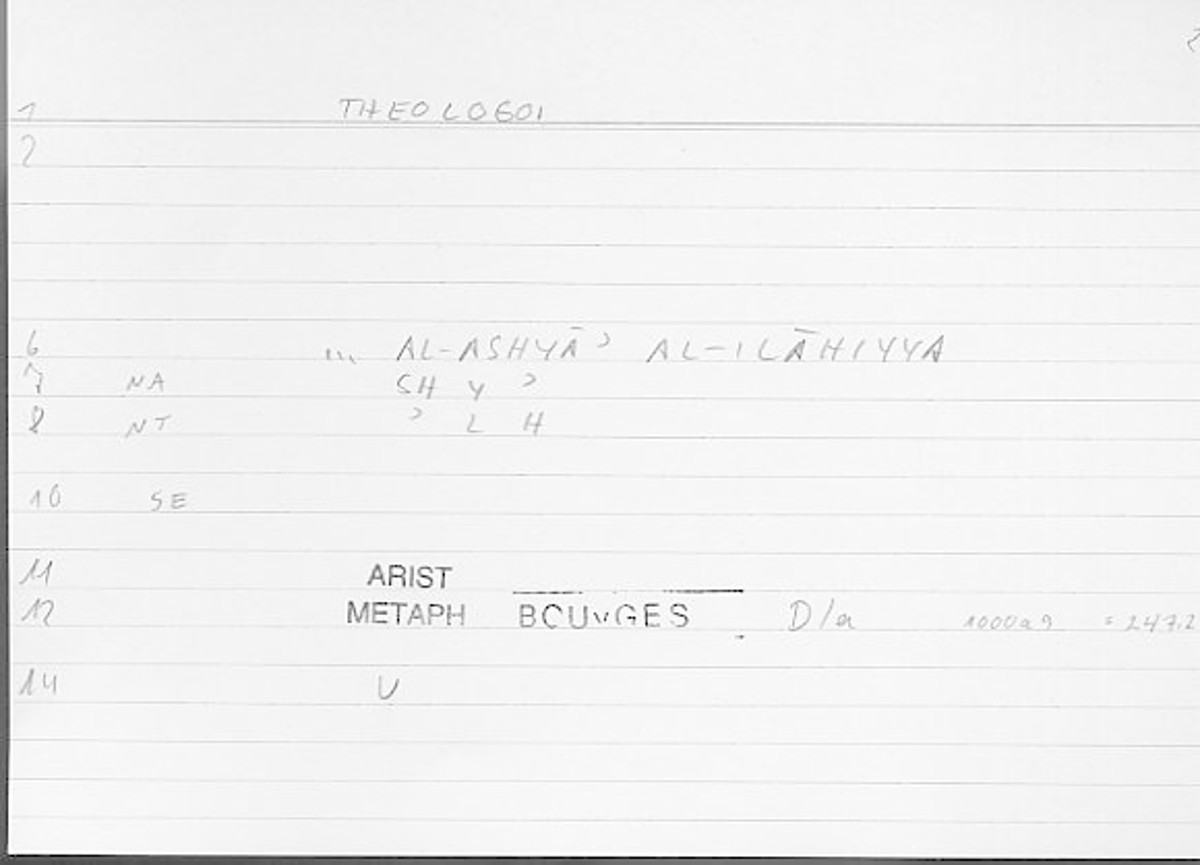 1 THEOLOGOI
2
6 ... AL-ASHYĀʾ AL-ILĀHIYYA
7 NA SH Y ʾ
8 NT ʾ L H
10 SE
11 ARIST
12 METAPH BOUYGES D/a 1000a9 = 247.2
14 V